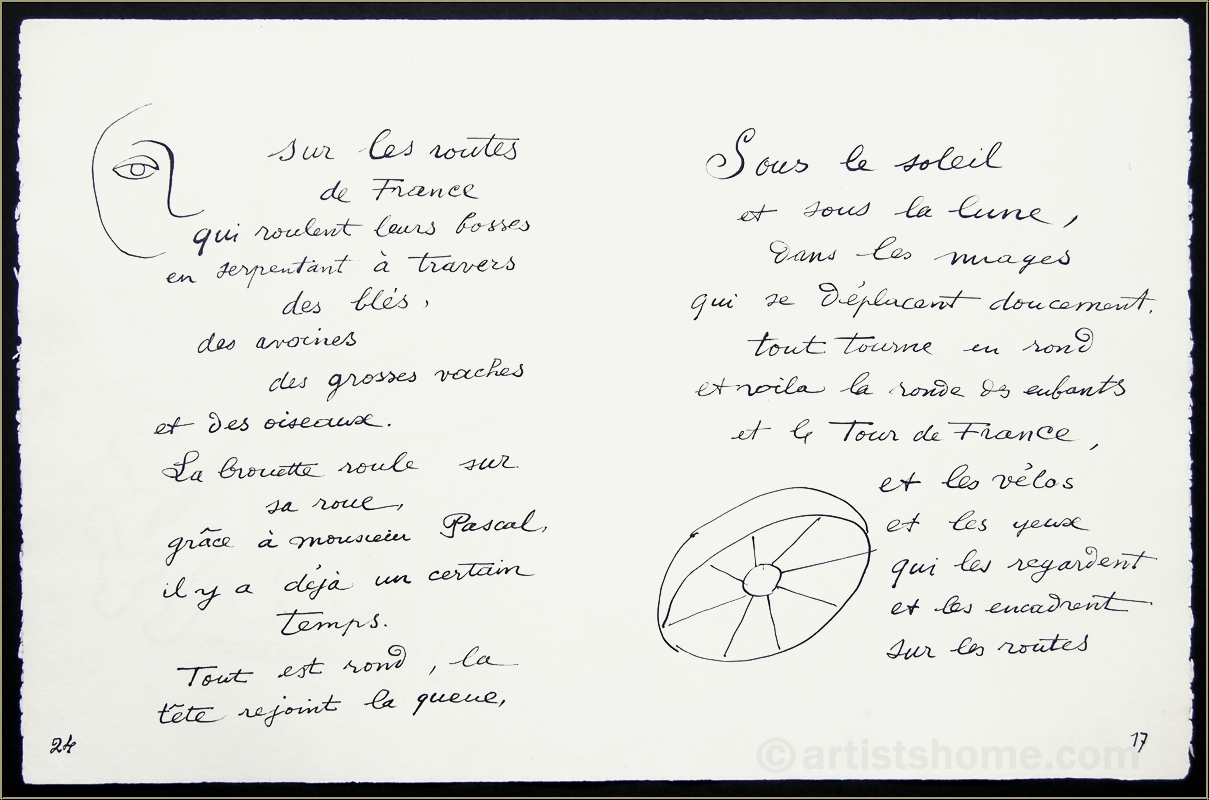 sur les routes
de France
qui roulent leurs bosses
en serpentant à travers
des blés,
des avoines
des grosses vaches
et des oiseaux.
La brouette roule sur
sa roue,
grâce à monsieur Pascal,
il y a déjà un certain
temps.
Tout est rond, la
tête rejoint la queue,
24
Sous le soleil
et sous la lune,
dans les nuages
qui se déplacent doucement,
tout tourne en rond
et voila la ronde des enfants
et le Tour de France,
et les vélos
et les yeux
qui les regardent
et les encadrent
sur les routes
17
© artistshome.com